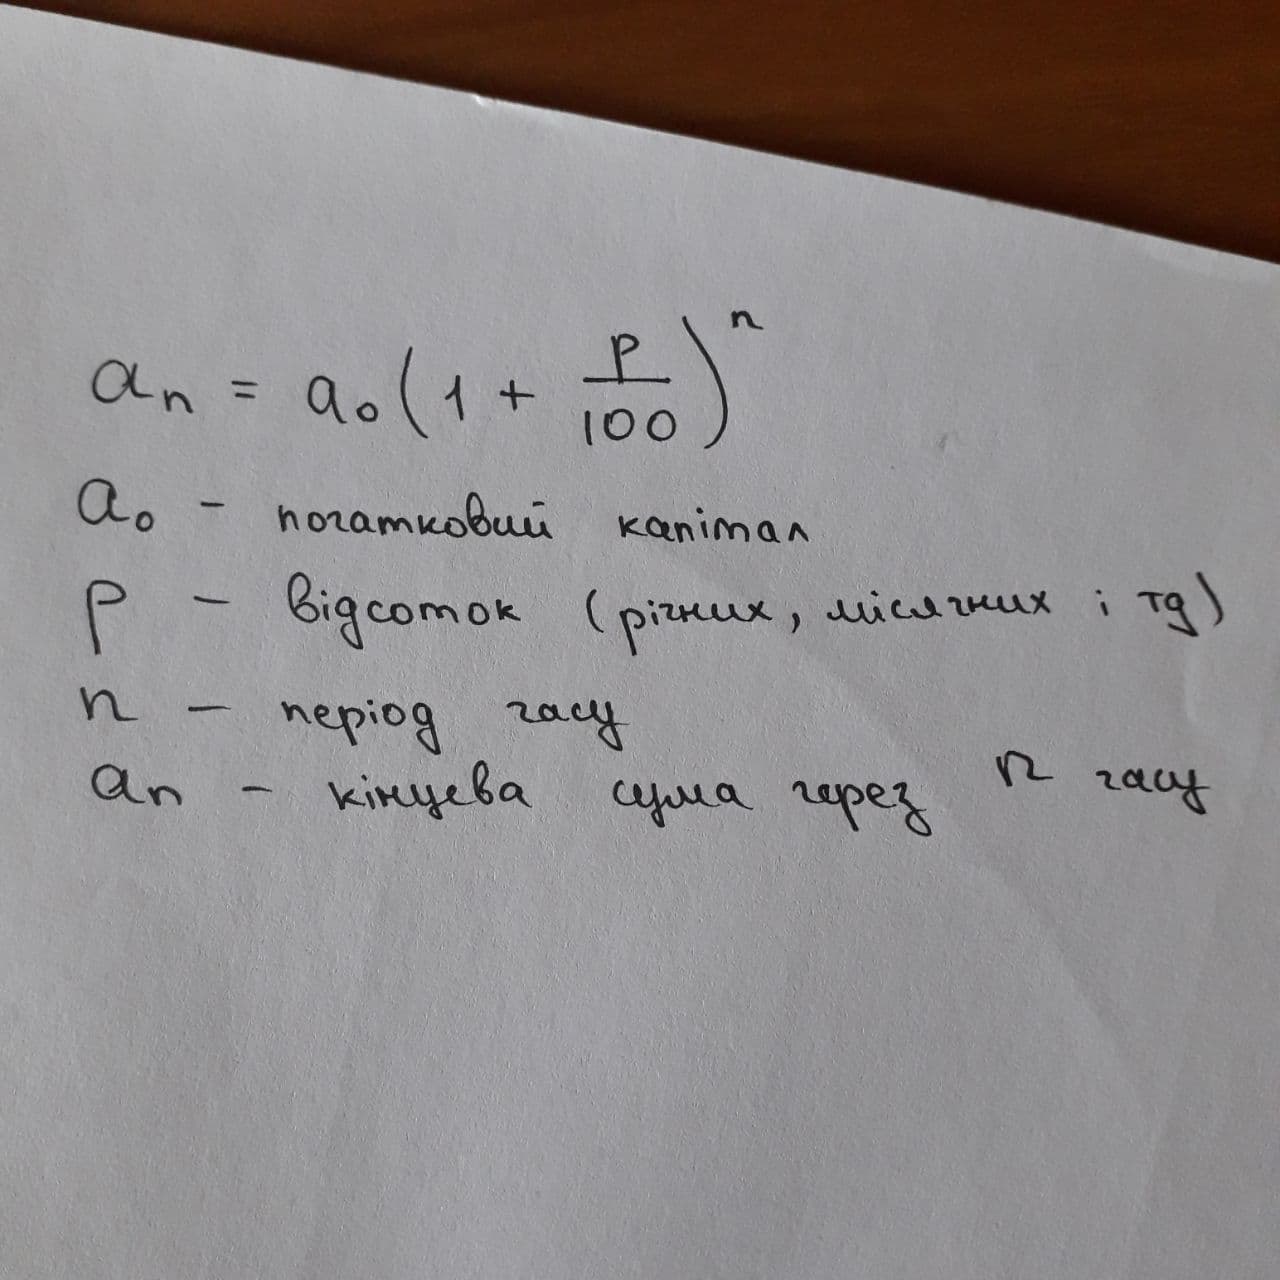 aₙ = a₀(1 + p/100)ⁿ
a₀ - початковий капітал
p - відсоток (річних, місячних і тд)
n - період часу
aₙ - кінцева сума через n часу